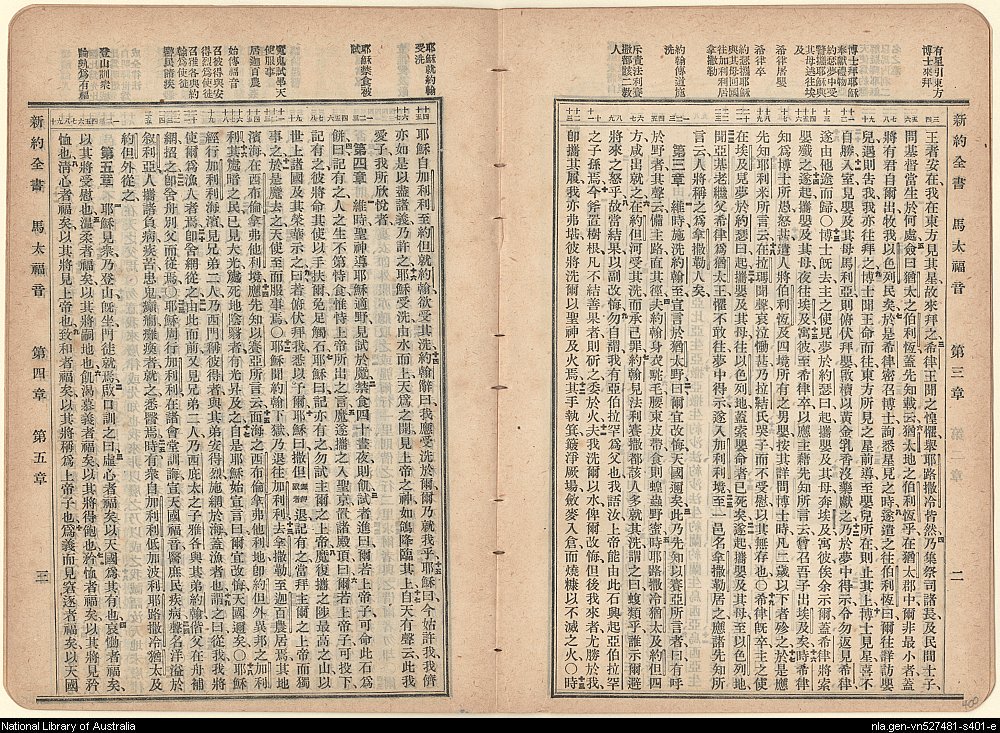 新約全書　馬太福音　第三章　二
有星引東方
博士來拜
博士拜耶穌
奉獻禮物
約瑟夢中受
警攜耶穌與
其母逃往埃
及
希律居嬰
希律卒
約瑟攜耶穌
與其母回國
往加利利居
拿撒勒
約翰傳道施
洗
斥責法利賽
撒都該二教
人
王者安在我在東方見其星故來拜之希律王聞之惶懼舉耶路撒冷皆然乃集祭司諸長及民間士子
問基督當生於何處僉曰猶太之伯利恆蓋先知載云猶太地之伯利恆乎在猶太郡中爾非最小者蓋
將有君自爾出牧我以色列民矣於是希律密召博士詢悉星見之時遂遣之往伯利恆曰爾往詳訪嬰
兒遇則告我我亦往拜之博士聞王命而往東方所見之星前導至嬰兒所在則止其上博士見星喜不
自勝入室見嬰及其母馬利亞卽俯伏拜嬰啟櫝以黃金乳香沒藥獻之乃於夢中得示令勿返見希律
遂由他途而歸○博士既去主之使見夢於約瑟曰起攜嬰及其母奔埃及寓彼俟余示爾蓋希律將索
嬰殲之遂起攜嬰及其母夜往埃及寓彼至希律卒以應主藉先知所言云曾召吾子出埃及矣時希律
知為博士所愚怒甚遣人將伯利恆及四境所有之男嬰按其詳問博士時凡二歲以下者殄之於是應
先知耶利米所言云在拉瑪聞聲哀拉慟甚乃拉結氏哭子而不受慰以其無存也○希律既卒主之使
在埃及見夢於約瑟曰起攜嬰及其母往以色列地蓋索嬰命者已死矣遂起攜嬰及其母至以色列地
聞亞基老繼父希律為猶太王懼不敢往夢中得示遂入加利利境至一邑名拿撒勒居之應諸先知所
言云人將稱之為拿撒勒人矣
第三章　維時施洗約翰至宣言於猶太野曰爾宜改悔天國邇矣此乃先知以賽亞所言者曰有呼
於野者其聲云備主路直其徑夫約翰身衣駝毛腰束皮帶食則蝗蟲野蜜時耶路撒冷猶太及約但四
方咸出就之在約但河受其洗而承己罪約翰見法利賽撒都該人多就其洗謂之曰蝮類乎誰示爾避
將來之怒乎故當結果以副改悔勿自謂我有亞伯拉罕為父也我語汝上帝能由此石興起亞伯拉罕
之子孫焉今斧置樹根凡不結善果者則斫之委於火夫我洗爾以水俾爾改悔但後我來者尤勝於我
卽攜其屨我亦弗堪彼將洗爾以聖神及火焉其手執箕簸淨厥場斂麥入倉而燒糠以不滅之火○時
耶穌就約翰
受洗
耶穌禁食被
試
魔鬼試畢天
使服事
居迦百農
始傳福音
召彼得與安
得烈為使徒
召雅各與約
翰為使徒
醫民諸疾
登山訓衆
論孰為有福
耶穌自加利利至約但就約翰欲受其洗約翰辭曰我應受洗於爾爾乃就我乎耶穌曰今姑許我我儕
亦如是以盡諸義乃許之耶穌受洗由水而上天為之開見上帝之神如鴿降臨其上自天有聲云此我
愛子我所欣悅者
第四章　維時聖神導耶穌適野見試於魔禁食四十晝夜則飢試者進曰爾若上帝子可命此石為
餅曰記有之人之生不第恃食惟恃上帝所出之言魔遂攜之入聖京置諸殿頂曰爾若上帝子可投下
記有之彼將命其使以手扶爾免足觸石耶穌曰記亦有之勿試主爾之上帝魔復攜之陟最高之山以
世上諸國及其榮華示之曰若俯伏拜我我悉以予爾耶穌曰撒但退記有之當拜主爾之上帝而獨
事之於是魔去之天使至而服事焉○耶穌聞約翰下獄乃退往加利利去拿撒勒至迦百農居焉其地
濱海在西布倫拿弗他利境應先知以賽亞所言云面海之西布倫拿弗他利地卽約但外異邦之加利
利其處暗之民已見大光處死地陰翳者得光昇及之自是耶穌始宣言曰爾宜改悔天國邇矣○耶穌
經行加利利海濱見兄弟二人乃西門稱彼得者與其弟安得烈施網於海蓋漁者也謂之曰從我我將
使爾為漁人者焉卽舍網從之由此而前又見兄弟二人乃西庇太之子雅各與其弟約翰偕父在舟補
網招之卽舍舟別父而從焉○耶穌周行加利利在諸會堂訓誨宣天國福音醫庶民疾病聲名洋溢於
叙利亞人攜諸負病疾苦患鬼癲癇癱瘓者就之悉醫焉時有衆自加利利低加波利耶路撒冷猶太及
約但外從之
第五章　耶穌見衆乃登山既坐門徒就焉啟口訓之曰虛心者福矣以天國為其有也哀慟者福矣
以其將受慰也溫柔者福矣以其將嗣地也飢渴慕義者福矣以其將得飽也矜恤者福矣以其將見矜
恤也清心者福矣以其將見上帝也致和者福矣以其將稱為上帝子也為義而見窘逐者福矣以天國
新約全書　馬太福音　第四章　第五章　三
National Library of Australia
nla.gen-vn527481-s401-e